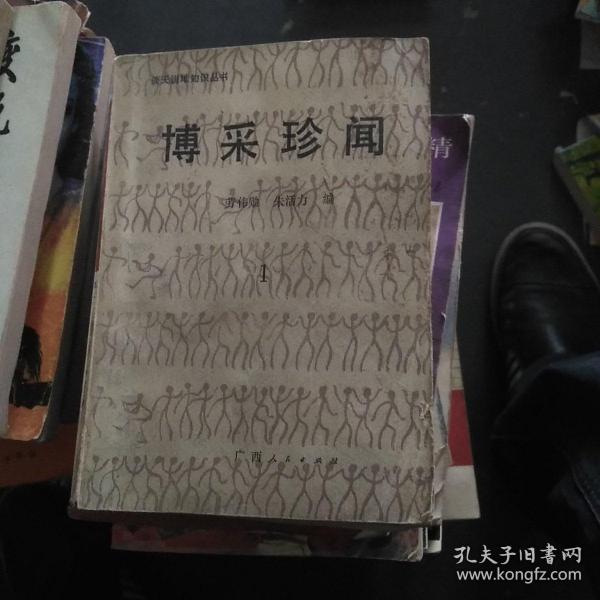 谈天说地知识丛书
博采珍闻
劳伟勋 朱活力 编
1
广西人民出版社
情
孔夫子旧书网
www.kongfz.com